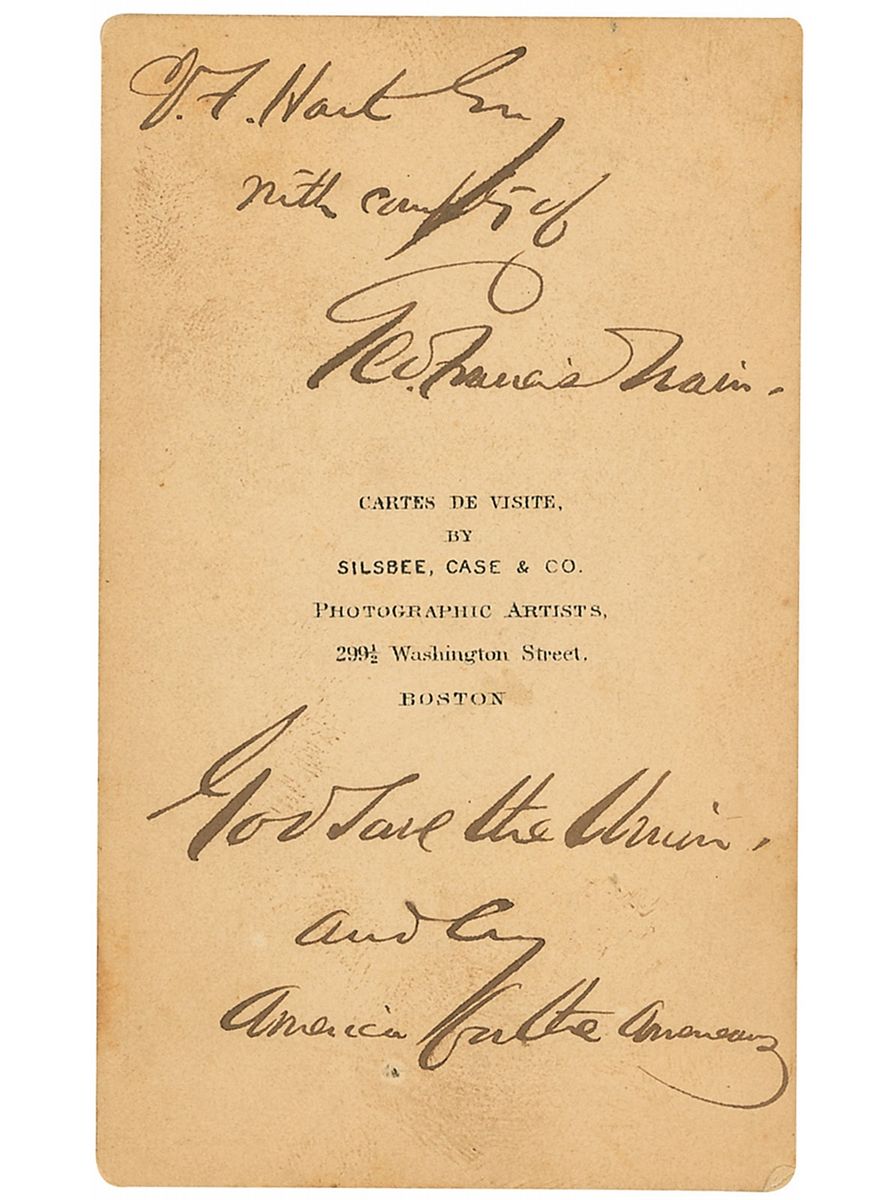 V. F. Hart Esq
with complts of
Geo. Francis Train.
CARTES DE VISITE,
BY
SILSBEE, CASE & CO.
PHOTOGRAPHIC ARTISTS,
299½ Washington Street.
BOSTON
God Save the Union,
and
America for the Americans